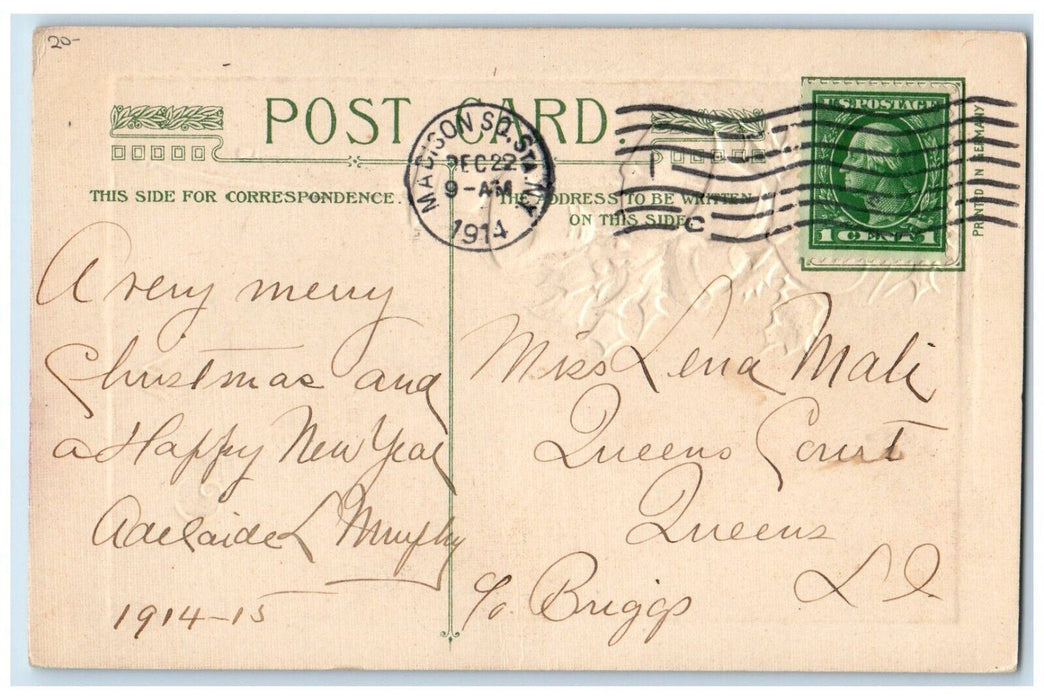 20-
POST CARD.
THIS SIDE FOR CORRESPONDENCE.
THE ADDRESS TO BE WRITTEN
ON THIS SIDE
MADISON SQ. STA. N.Y.
DEC 22
9-AM
1914
P
C
U.S. POSTAGE
1 CENT 1
PRINTED IN GERMANY
A very merry
Christmas and
a Happy New Year
Adelaide L Murphy
1914-15
Miss Lena Mali
Queens Court
Queens
L I
c/o. Briggs